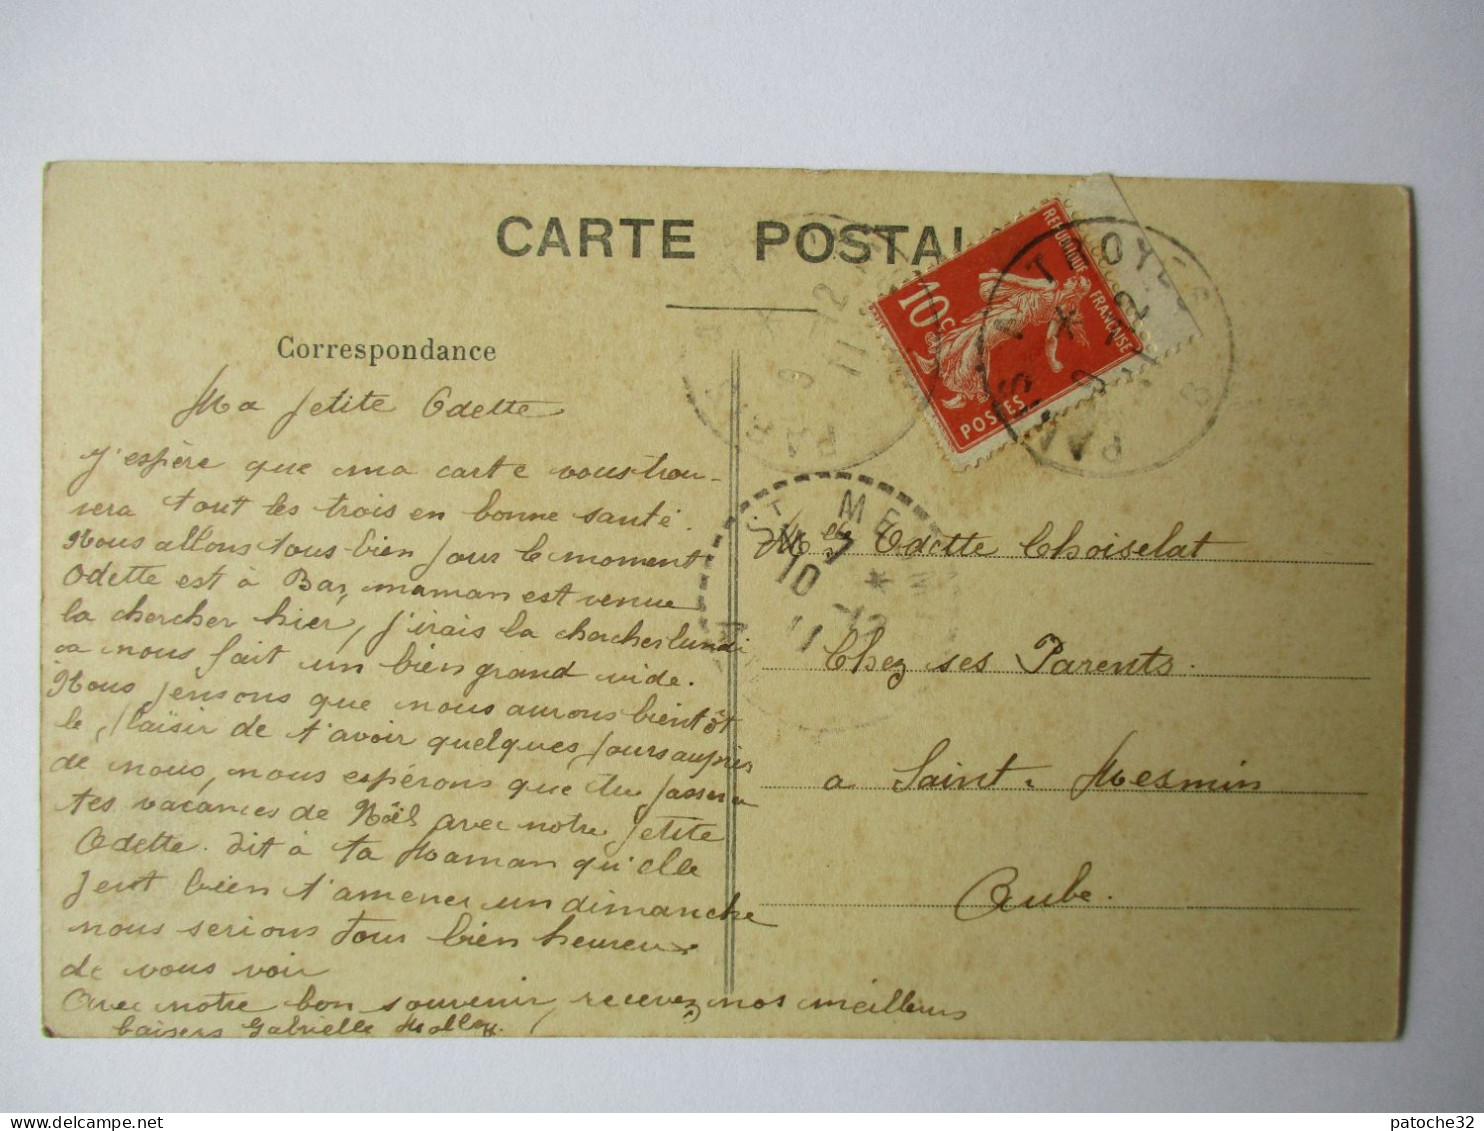 CARTE POSTAL
Correspondance
Ma petite Odette
J'espère que ma carte vous trou-
vera tout les trois en bonne santé.
Nous allons tous bien pour le moment
Odette est à Bar, maman est venue
la chercher hier, j'irais la chercher lundi
ça nous fait un bien grand vide.
Nous pensons que nous aurons bientôt
le plaisir de t'avoir quelques jours auprès
de nous, nous espérons que tu passera
tes vacances de Noël avec notre petite
Odette. dit à ta Maman qu'elle
peut bien t'amener un dimanche
nous serions tous bien heureux
de vous voir
Avec notre bon souvenir, recevez nos meilleurs
baisers Gabrielle
REPUBLIQUE FRANÇAISE
10c
POSTES
TROYES A PARIS
9 12
11
TROYES A PARIS
9 12
ST MESMIN
10 -12
11
Melle Odette Choiselat
Chez ses Parents.
a Saint-Mesmin
Aube.
patoche32